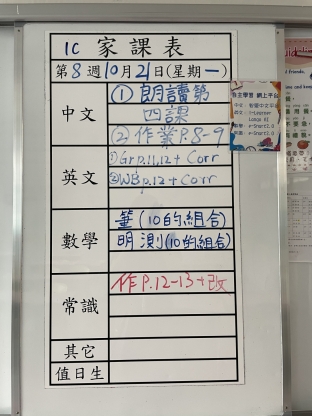 1C 家課表
第8週10月21日(星期一)
中文
① 朗讀第
四課
(2) 作業P.8-9
英文
① Gr p.11,12 + Corr
② WB p.12 + Corr
數學
筆(10的組合)
明 測(10的組合)
常識
作 P.12-13+改
其它
值日生
自主學習 網上平台